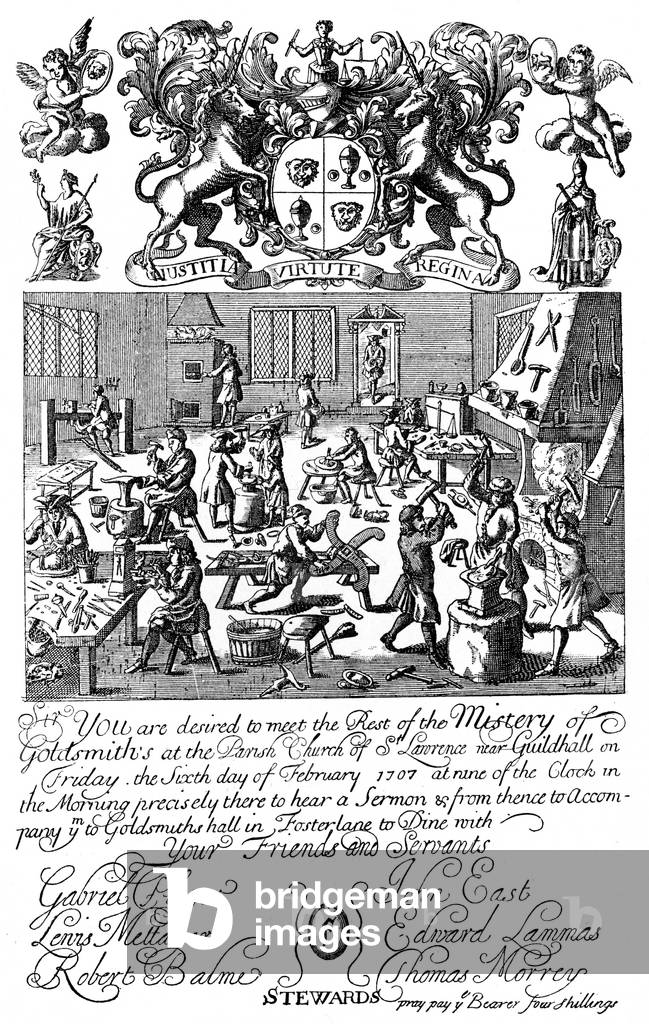 JUSTITIA VIRTUTE REGINA
Sir YOU are desired to meet the Rest of the Mistery of
Goldsmith's at the Parish Church of St Lawrence near Guildhall on
Friday. the Sixth day of February 1707 at nine of the Clock in
the Morning precisely there to hear a Sermon & from thence to Accom-
pany ym to Goldsmiths hall in Foster lane to Dine with
Your Friends and Servants
Gabriel
East
Lewis
Edward Lammas
Robert Balme
Thomas Morrey
STEWARDS
pray pay ye Bearer four shillings
b bridgeman
images